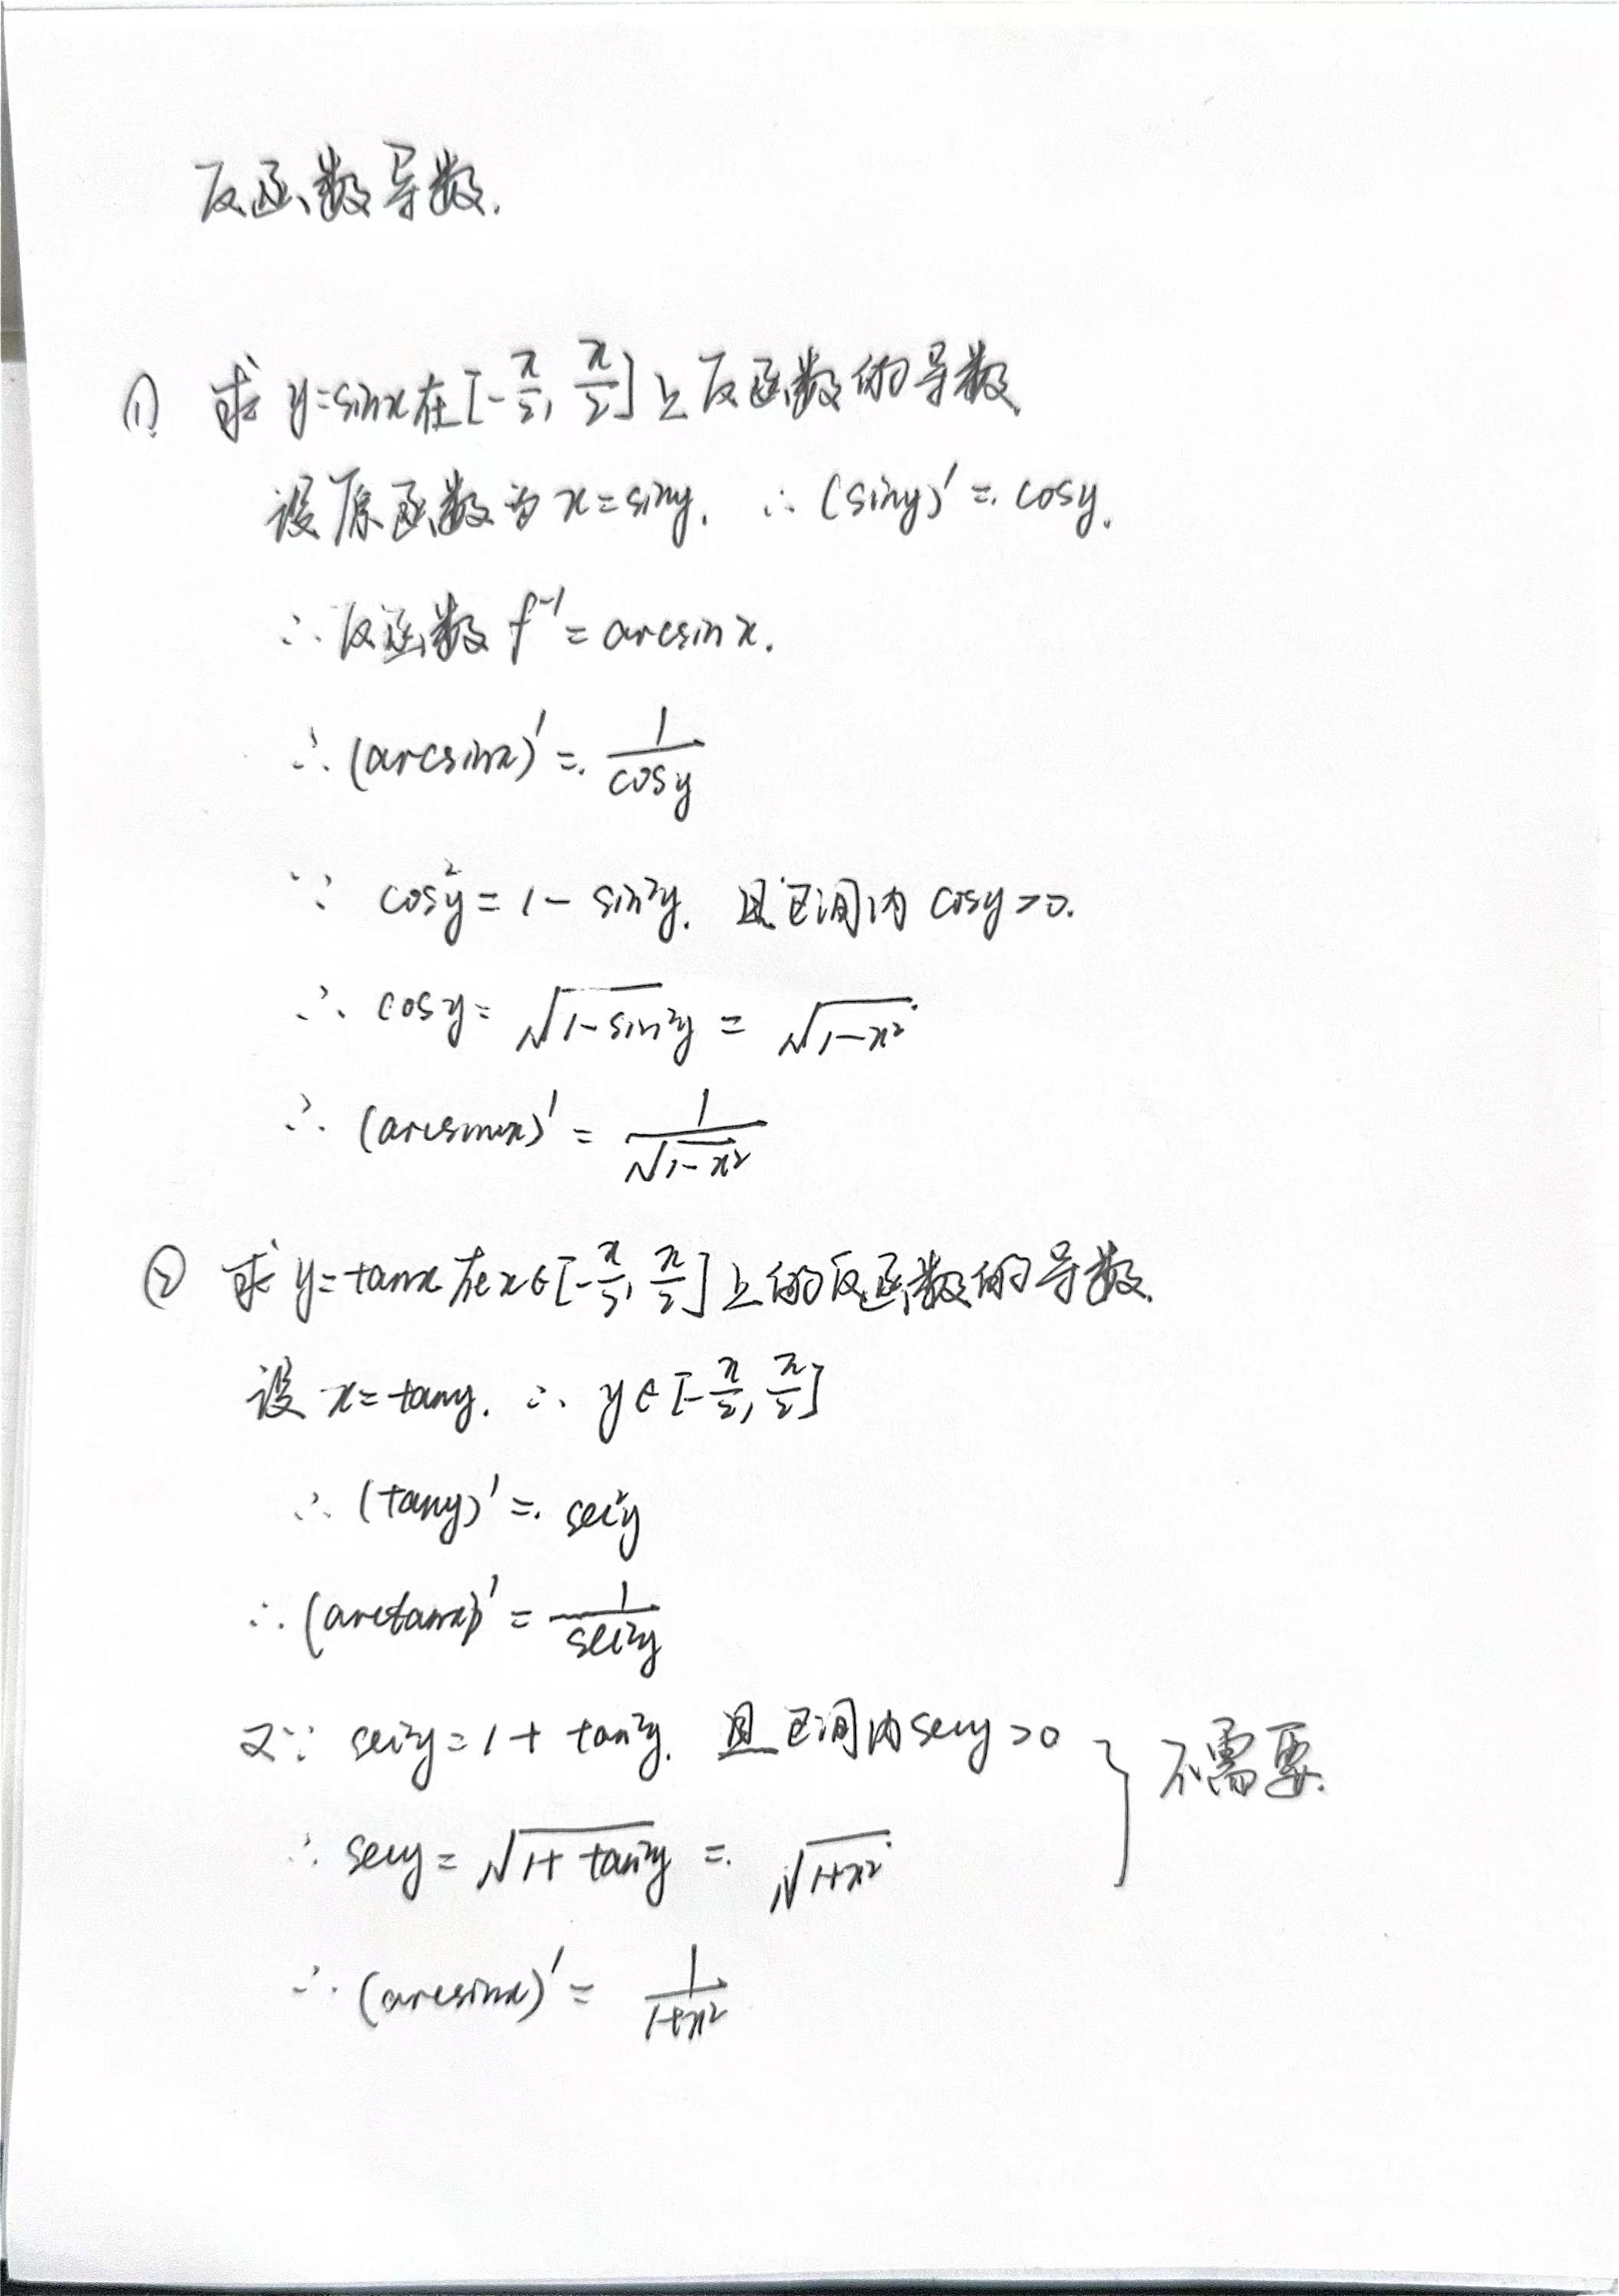 反函数导数.
① 求 y=sinx在[-π/2, π/2]上反函数的导数
设原函数为 x=siny. ∴ (siny)′= cosy.
∴反函数 f⁻¹= arcsinx.
∴ (arcsinx)′= 1/cosy
∵ cos²y = 1 - sin²y. 且区间内 cosy>0.
∴ cosy= √(1-sin²y) = √(1-x²)
∴ (arcsinx)′ = 1/√(1-x²)
② 求 y=tanx在x∈[-π/2, π/2]上的反函数的导数.
设 x=tany. ∴ y∈[-π/2, π/2]
∴ (tany)′= sec²y
∴ (arctanx)′ = 1/sec²y
又∵ sec²y=1+ tan²y. 且区间内secy>0 } 不需要.
∴ secy=√(1+ tan²y) = √(1+x²)
∴ (arcsinx)′ = 1/(1+x²)